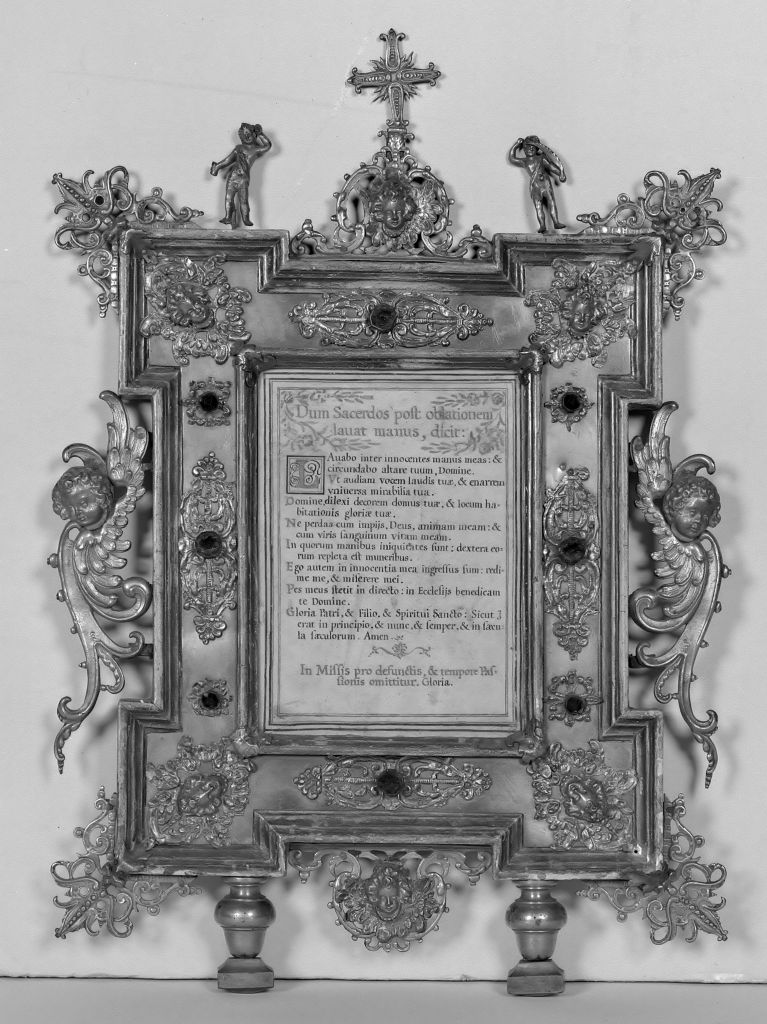 Dum Sacerdos post oblationem
lauat manus, dicit:
LAuabo inter innocentes manus meas: &
circundabo altare tuum, Domine.
Vt audiam vocem laudis tuæ, & enarrem
vniuersa mirabilia tua.
Domine, dilexi decorem domus tuæ, & locum ha-
bitationis gloriæ tuæ.
Ne perdas cum impijs, Deus, animam meam: &
cum viris sanguinum vitam meam.
In quorum manibus iniquitates sunt: dextera eo-
rum repleta est muneribus.
Ego autem in innocentia mea ingressus sum: redi-
me me, & miserere mei.
Pes meus stetit in directo: in Ecclesijs benedicam
te Domine.
Gloria Patri, & Filio, & Spiritui Sancto: Sicut
erat in principio, & nunc, & semper, & in sæcu-
la sæculorum. Amen.
In Missis pro defunctis, & tempore Pas-
sionis omittitur. Gloria.